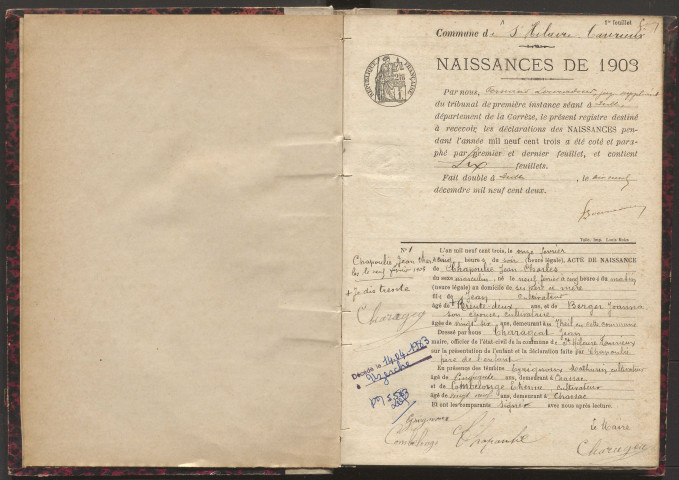 1er feuillet
Commune de St Hilaire Taurieux
RÉPUBLIQUE FRANÇAISE
NAISSANCES DE 1903
Par nous, juge suppléant
du tribunal de première instance séant à Tulle
département de la Corrèze, le présent registre destiné
à recevoir les déclarations des NAISSANCES pen-
dant l'année mil neuf cent trois a été coté et para-
phé par premier et dernier feuillet, et contient
Six feuillets.
Fait double à Tulle, le
décembre mil neuf cent deux.
Tulle, Imp. Louis
N° 1
Chapoulie Jean Charles
le neuf février 1903
+ je dis trente
Charageat
Décédé le 14.04.1983
à Uzerche
L'an mil neuf cent trois, le onze février
heure du soir (heure légale), ACTE DE NAISSANCE
de Chapoulie Jean Charles
du sexe masculin, né le neuf février à cinq heures du matin
(heure légale) au domicile de ses père et mère
fils de Jean cultivateur
âgé de + trente deux ans, et de Berger Joanna
son épouse, cultivatrice
âgée de vingt six ans, demeurant au Theil en cette commune
Dressé par nous Charageat Jean
maire, officier de l'état-civil de la commune de St Hilaire Taurieux
sur la présentation de l'enfant et la déclaration faite par Chapoulie
père de l'enfant
En présence des témoins Mathurin cultivateur
âgé de cinquante ans, demeurant à Chassac
et de Combelonge cultivateur
âgé de vingt neuf ans, demeurant à Chassac
Et ont les comparants signé avec nous après lecture.
Le Maire
Combelonge Chapoulie
Charageat